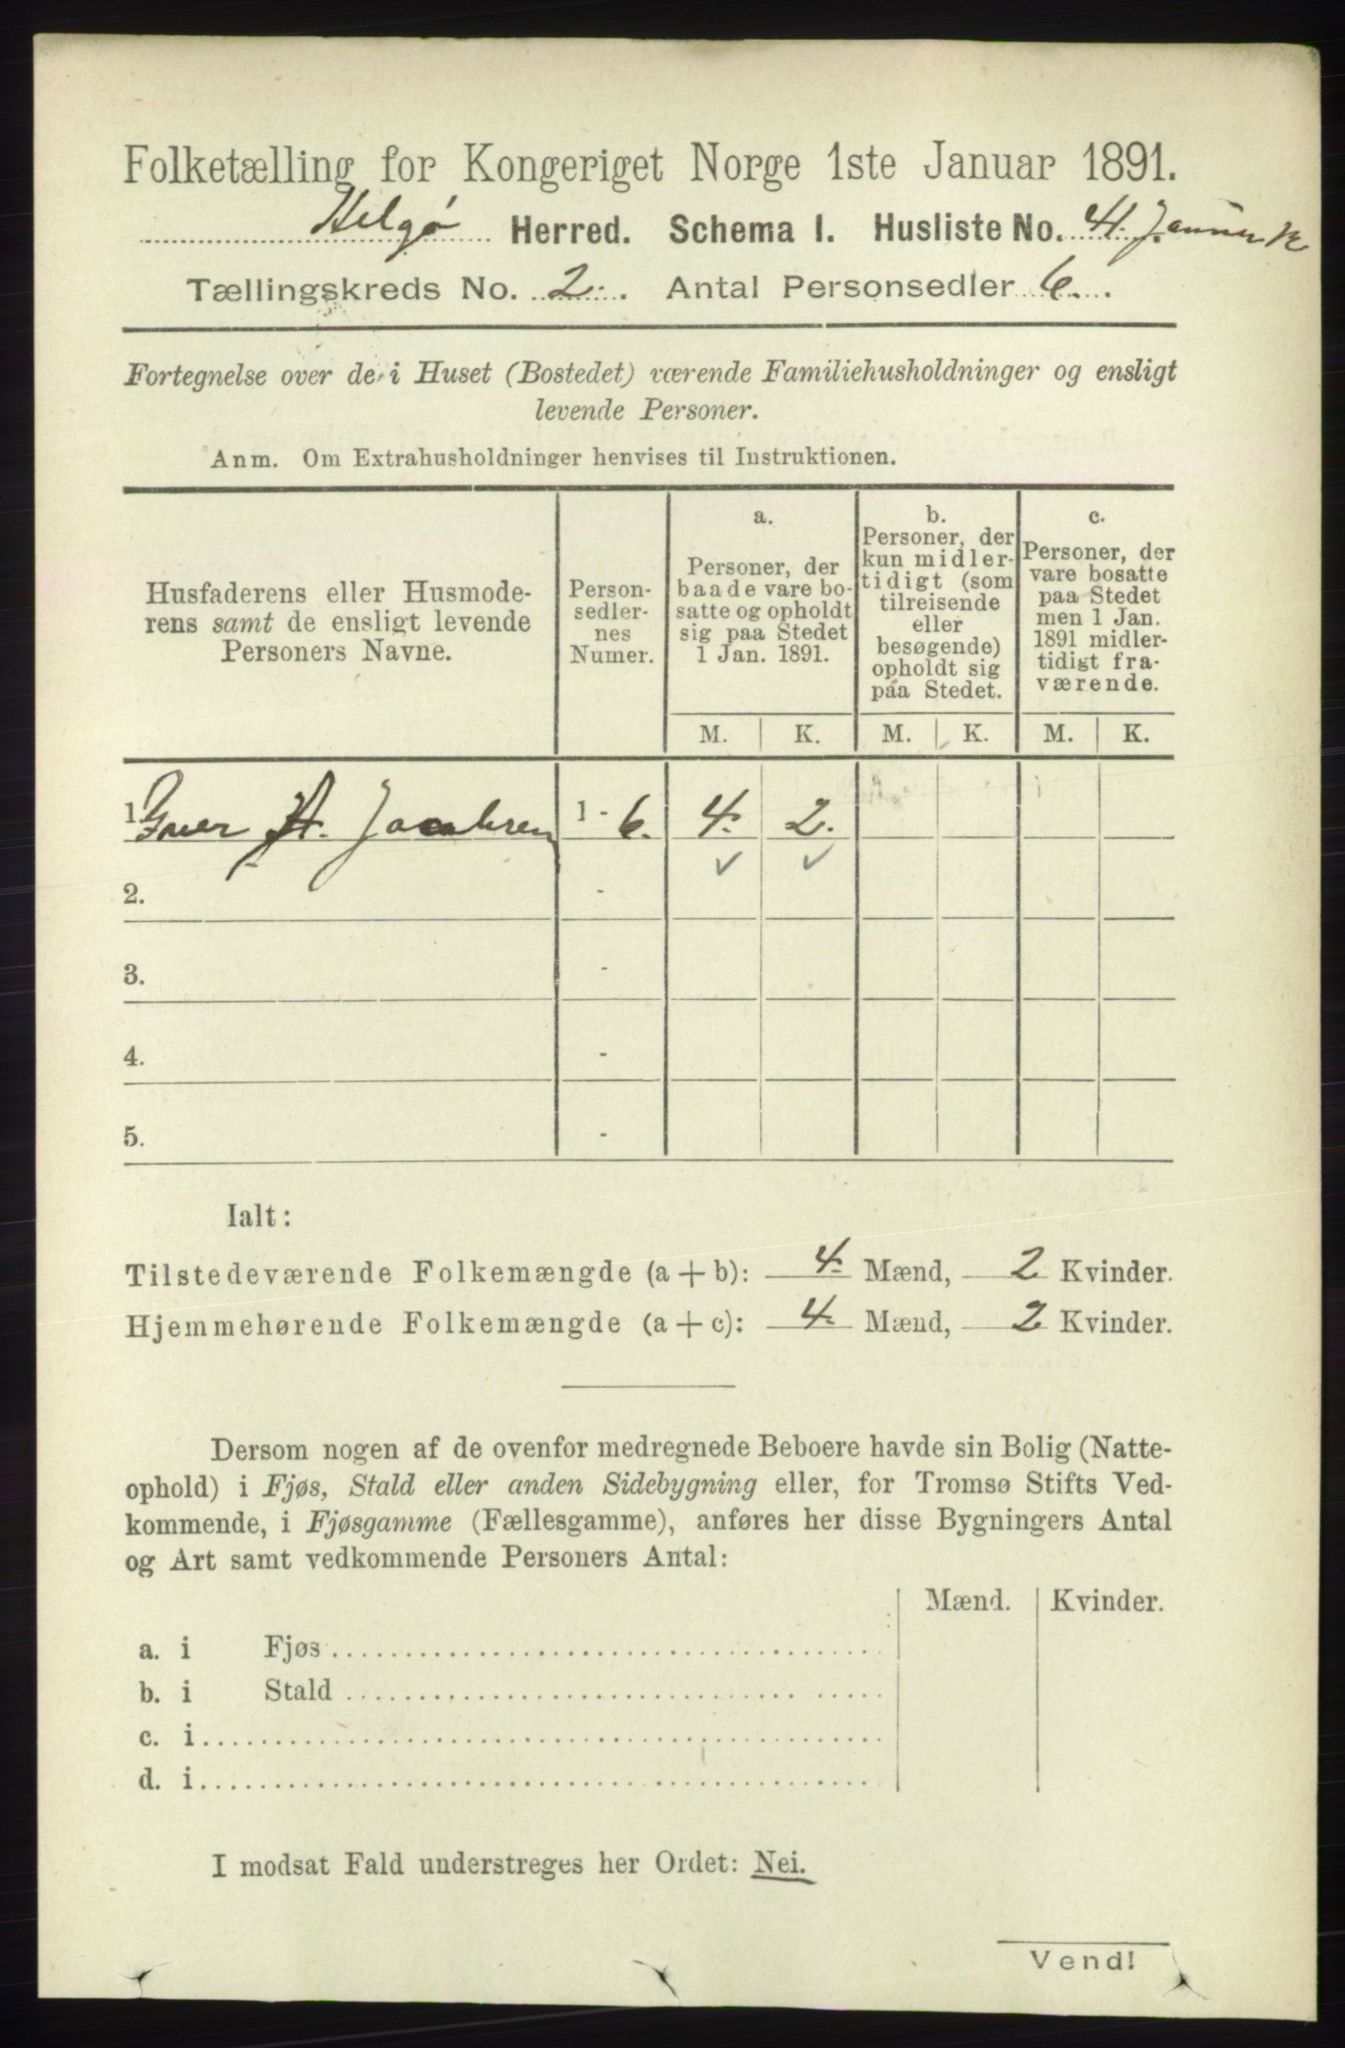 Folketælling for Kongeriget Norge 1ste Januar 1891.
Helgø Herred. Schema I. Husliste No. 41.
Tællingskreds No. 2. Antal Personsedler 6.
Fortegnelse over de i Huset (Bostedet) værende Familiehusholdninger og ensligt
levende Personer.
Anm. Om Extrahusholdninger henvises til Instruktionen.
Husfaderens eller Husmode-
rens samt de ensligt levende
Personers Navne.
Person-
sedler-
nes
Numer.
a.
Personer, der
baade vare bo-
satte og opholdt
sig paa Stedet
1 Jan. 1891.
b.
Personer, der
kun midler-
tidigt (som
tilreisende
eller
besøgende)
opholdt sig
paa Stedet.
c.
Personer, der
vare bosatte
paa Stedet
men 1 Jan.
1891 midler-
tidigt fra-
værende.
M. K. M. K. M. K.
1. A. Jacobsen 1 - 6. 4. 2.
2. -
3. -
4. -
5. -
Ialt:
Tilstedeværende Folkemængde (a + b): 4. Mænd, 2 Kvinder.
Hjemmehørende Folkemængde (a + c): 4. Mænd, 2 Kvinder.
Dersom nogen af de ovenfor medregnede Beboere havde sin Bolig (Natte-
ophold) i Fjøs, Stald eller anden Sidebygning eller, for Tromsø Stifts Ved-
kommende, i Fjøsgamme (Fællesgamme), anføres her disse Bygningers Antal
og Art samt vedkommende Personers Antal:
Mænd. Kvinder.
a. i Fjøs
b. i Stald
c. i
d. i
I modsat Fald understreges her Ordet: Nei.
Vend!